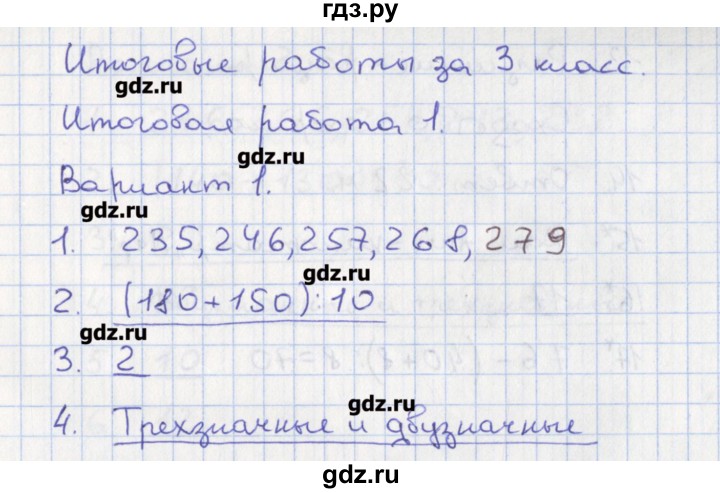 гдз.ру
Итоговые работы за 3 класс.
gdz.ru
Итоговая работа 1.
gdz.ru
Вариант 1.
gdz.ru
1. 235, 246, 257, 268, 279
gdz.ru
2. (180+150):10
gdz.ru
3. 2
gdz.ru
4. Трехзначные и двузначные
gdz.ru